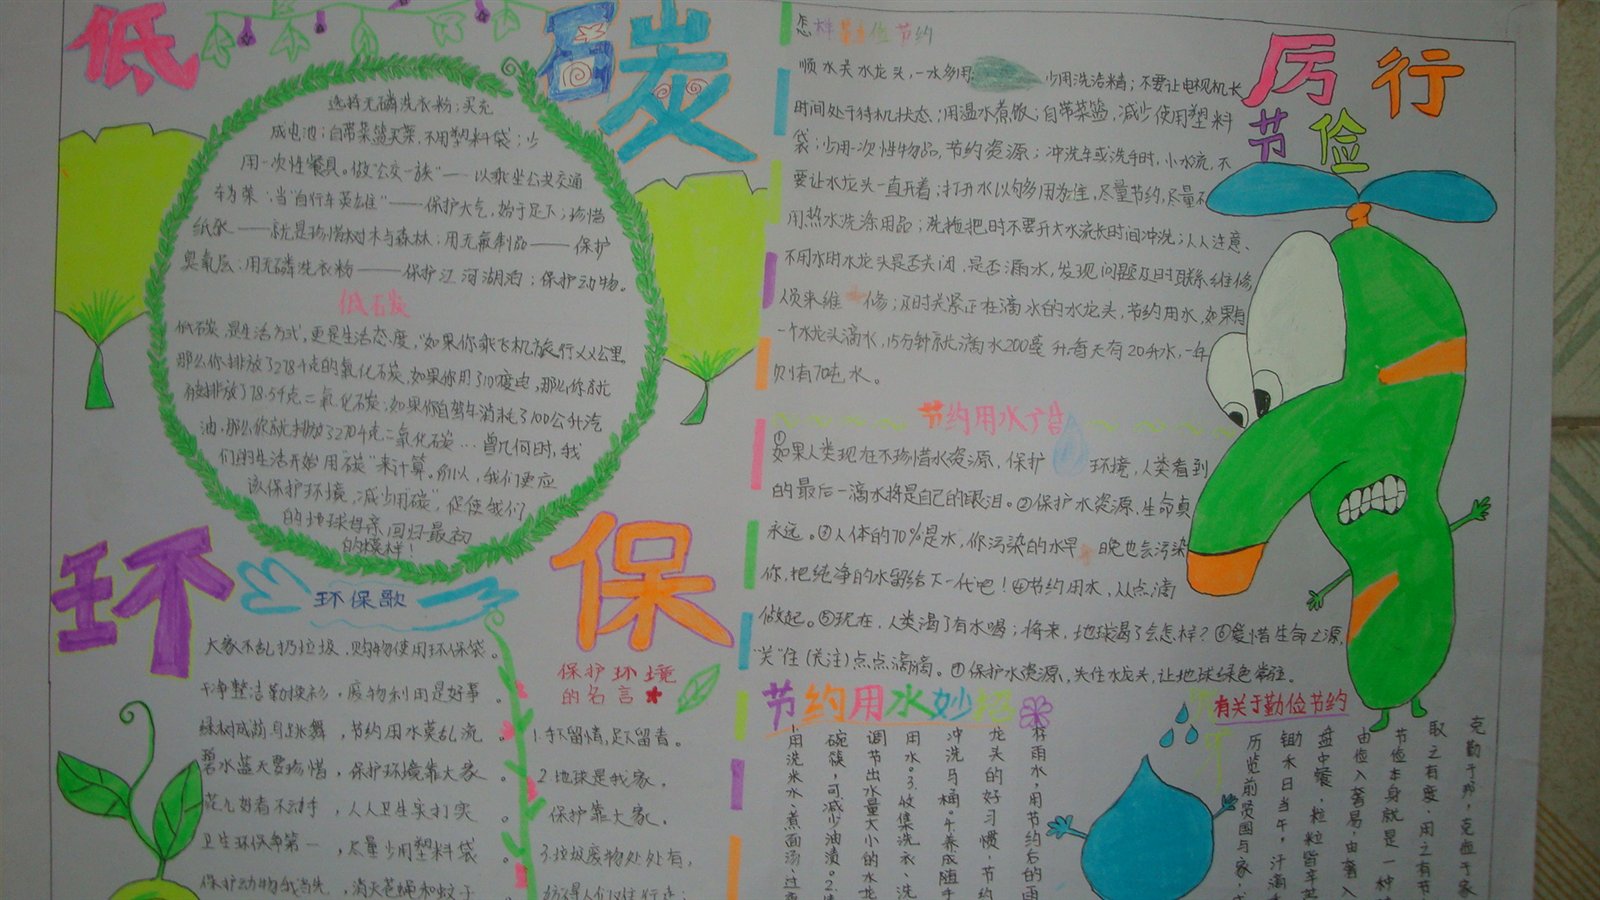 低
碳
选择无磷洗衣粉；买充
成电池；自带菜篮买菜，不用塑料袋；少
用一次性餐具。做“公交一族”——以乘坐公共交通
车为荣；当“自行车英雄”——保护大气，始于足下；珍惜
纸张——就是珍惜树木与森林；用无氟制品——保护
臭氧层；用无磷洗衣粉——保护江河湖泊；保护动物。
低碳
低碳，是生活方式，更是生活态度，“如果你乘飞机旅行
那么你排放了278千克的氧化石炭，如果你用了100度电，那么你就
排放了78.5千克二氧化石炭；如果你自驾车消耗了100公升汽
油，那么你就排放了270千克二氧化石炭…曾几何时，我
们的生活开始用“碳”来计算。所以，我们更应
该保护环境，减少用“碳”，促使我们
的地球母亲回归最初
的模样！
环
保
环保歌
大家不乱扔垃圾，购物使用环保袋。
干净整洁勤换衫，废物利用是好事。
绿树成荫鸟跳舞，节约用水莫乱流。
碧水蓝天要珍惜，保护环境靠大家。
花儿好看不动手，人人卫生实打实。
卫生环保争第一，尽量少用塑料袋。
保护动物我当先，消灭苍蝇和蚊子
保护环境
的名言
1.手不留情，足不留青。
2.地球是我家，
保护靠大家。
3.垃圾废物处处有，
怎样节约
顺水关水龙头，一水多用
少用洗洁精；不要让电视机长
时间处于待机状态；用温水煮饭；自带菜篮，减少使用塑料
袋；少用一次性物品，节约资源；冲洗车或洗手时，小水流，不
要让水龙头一直开着；打开水以够多用为佳，尽量节约，尽量不
用热水洗涤用品；洗拖把时不要开大水流长时间冲洗；人人注意、
不用水时水龙头是否关闭，是否漏水，发现问题及时联系维修
人员来维修；及时关紧正在滴水的水龙头，节约用水，如果
一个水龙头滴水，15分钟就滴水200毫升，每天有20升水，一年
则有70吨水。
厉行
节俭
节约用水广告
①如果人类现在不珍惜水资源，保护环境，人类看到
的最后一滴水将是自己的眼泪。②保护水资源，生命真
永远。③人体的70%是水，你污染的水早晚也会污染
你，把纯净的水留给下一代吧！④节约用水，从点滴
做起。⑤现在，人类渴了有水喝；将来，地球渴了会怎样？⑥爱惜生命之源，
“关”住（关注）点点滴滴。⑦保护水资源，关住水龙头，让地球绿色常驻。
节约用水妙招
雨水，用节约后的雨
龙头的好习惯，节约
冲洗马桶。4.养成随手
用水。3.收集洗衣、洗
调节出水量大小的水龙
碗筷，可减少油渍。2.
用洗米水、煮面汤、过
有关于勤俭节约
克勤于邦，克俭于家
取之有度，用之有节
节俭本身就是一种
由俭入奢易，由奢入
盘中餐，粒粒皆辛苦
锄禾日当午，汗滴
历览前贤国与家，